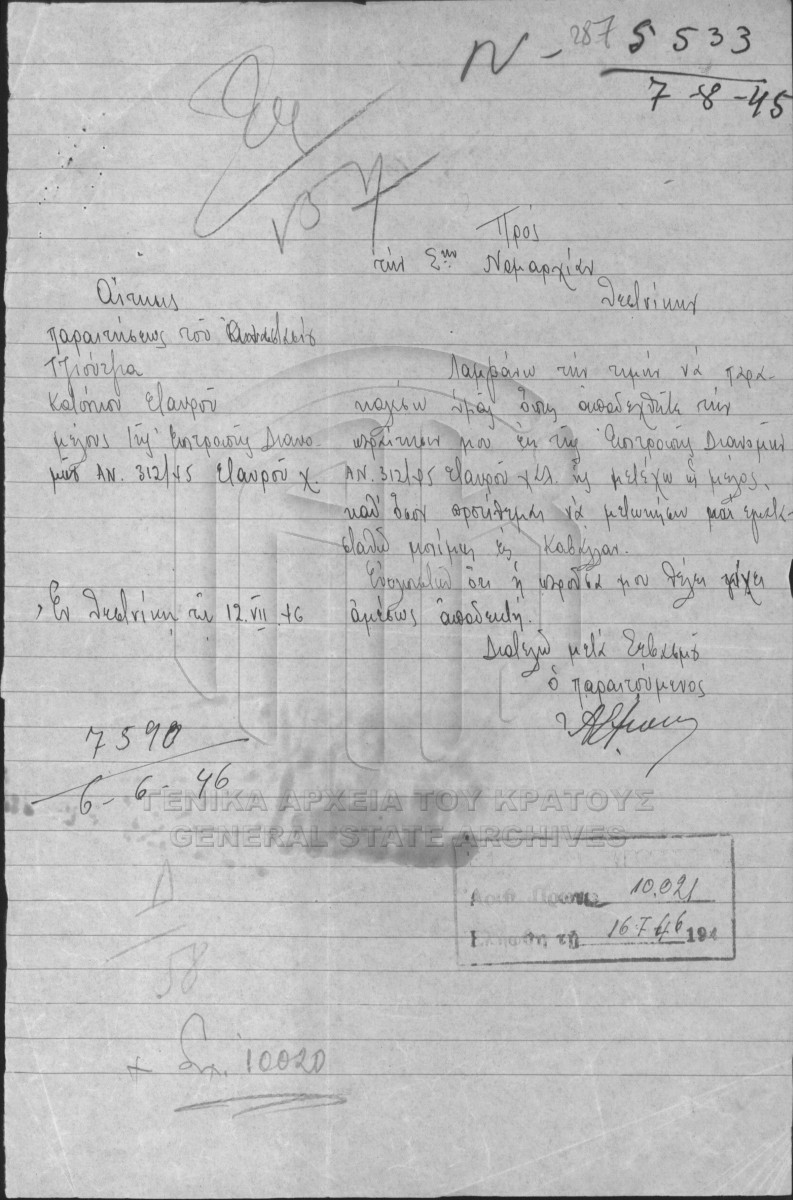 N - 287 5 533
7-8-45
Πρός
την Σην Νομαρχίαν
Θεσ/νίκην
Αίτησις
παραιτήσεως του Αναστασίου
Τζιούτζια
Κατοίκου Σταυρού
μέλους της Επιτροπής Διανο-
μής ΑΝ. 312/45 Σταυρού Χ.
Λαμβάνω την τιμήν να παρα-
καλέσω υμάς όπως αποδεχθήτε την
παραίτησίν μου εκ της Επιτροπής Διανομών
ΑΝ. 312/45 Σταυρού ης μετέχω ως μέλος,
καθ' όσον προτίθεμαι να μετοικήσω και εγκατα-
σταθώ μονίμως εις Καβάλλαν.
Ευελπιστώ ότι η παρούσα μου θέλει τύχει
αμέσως αποδεκτή.
Εν Θεσ/νίκη τη 12.VII.46
Διατελώ μετά Σεβασμού
ο παραιτούμενος
7590
6-6-46
ΓΕΝΙΚΑ ΑΡΧΕΙΑ ΤΟΥ ΚΡΑΤΟΥΣ
GENERAL STATE ARCHIVES
Αριθ. Πρωτ. 10.021
Ελήφθη τη 16.7.46 194
Δ
58
+ Σχ. 10020